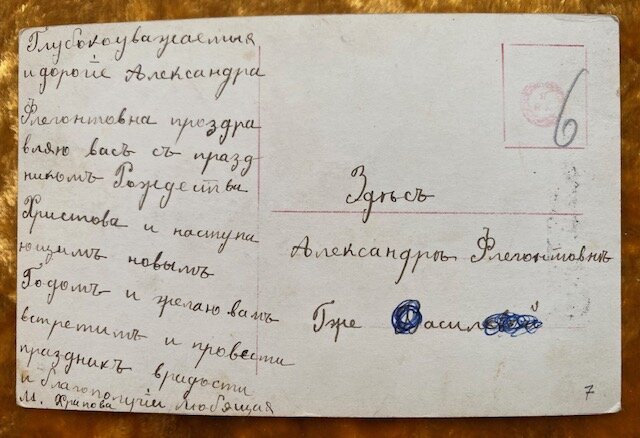 Глубокоуважаемыя
и дорогіе Александра
Флегонтовна проздра
вляю васъ съ празд
никомъ Рождества
Христова и наступа
ющимъ новымъ
Годомъ и желаю вамъ
встретимъ и провести
праздникъ врадости
и благополучіи любящая
М. Храпова
6
Здѣсь
Александрѣ Флегонтовнѣ
Гже
7